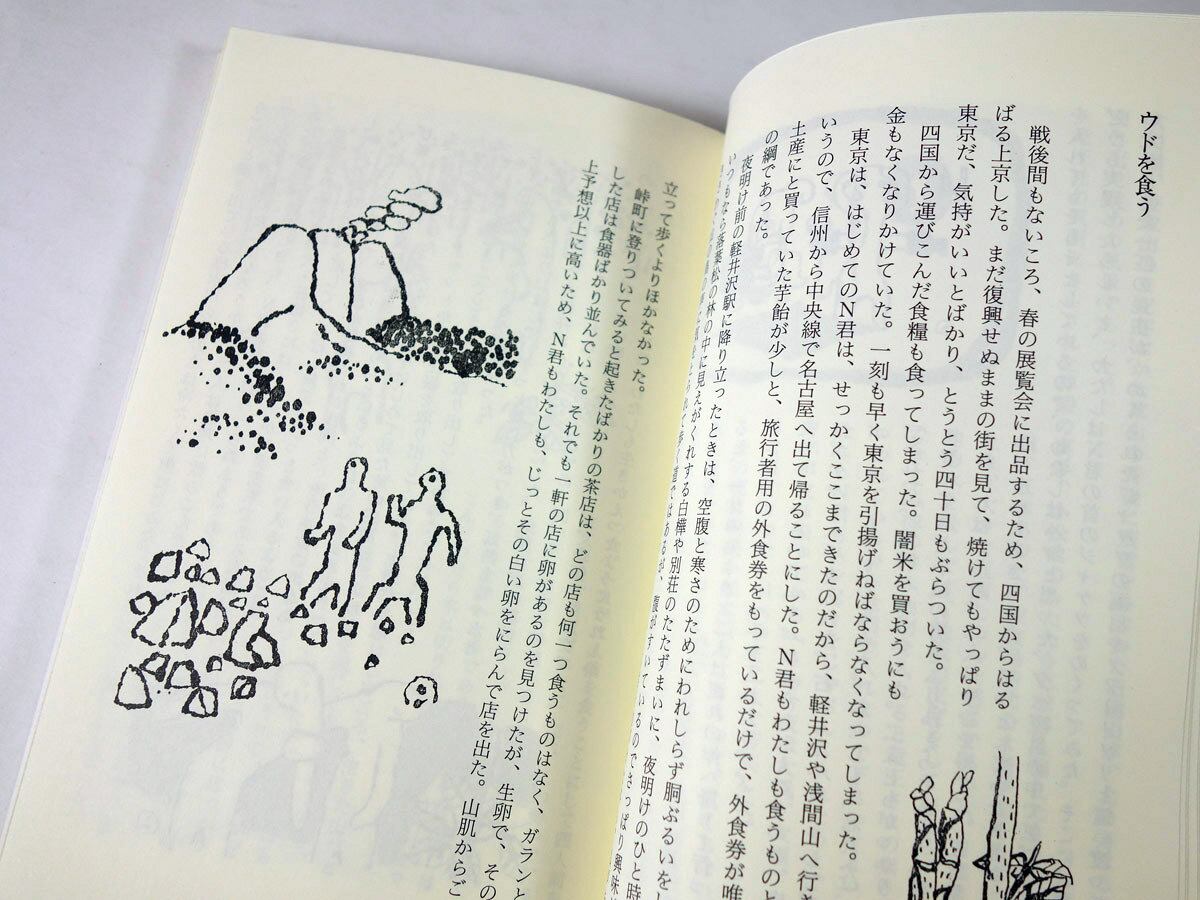 ウドを食う
戦後間もないころ、春の展覧会に出品するため、四国からはる
ばる上京した。まだ復興せぬままの街を見て、焼けてもやっぱり
東京だ、気持がいいとばかり、とうとう四十日もぶらついた。
四国から運びこんだ食糧も食ってしまった。闇米を買おうにも
金もなくなりかけていた。一刻も早く東京を引揚げねばならなくなってしまった。
東京は、はじめてのN君は、せっかくここまできたのだから、軽井沢や浅間山へ行き
いうので、信州から中央線で名古屋へ出て帰ることにした。N君もわたしも食うものと
土産にと買っていた芋飴が少しと、旅行者用の外食券をもっているだけで、外食券が唯
の綱であった。
夜明け前の軽井沢駅に降り立ったときは、空腹と寒さのためにわれしらず胴ぶるいをし
いつもなら落葉松の林の中に見えがくれする白樺や別荘のたたずまいに、夜明けのひと時
道ではあるが、腹がすいているのでさっぱり興味
立って歩くよりほかなかった。
峠町に登りついてみると起きたばかりの茶店は、どの店も何一つ食うものはなく、ガランと
した店は食器ばかり並んでいた。それでも一軒の店に卵があるのを見つけたが、生卵で、その
上予想以上に高いため、N君もわたしも、じっとその白い卵をにらんで店を出た。山肌からご